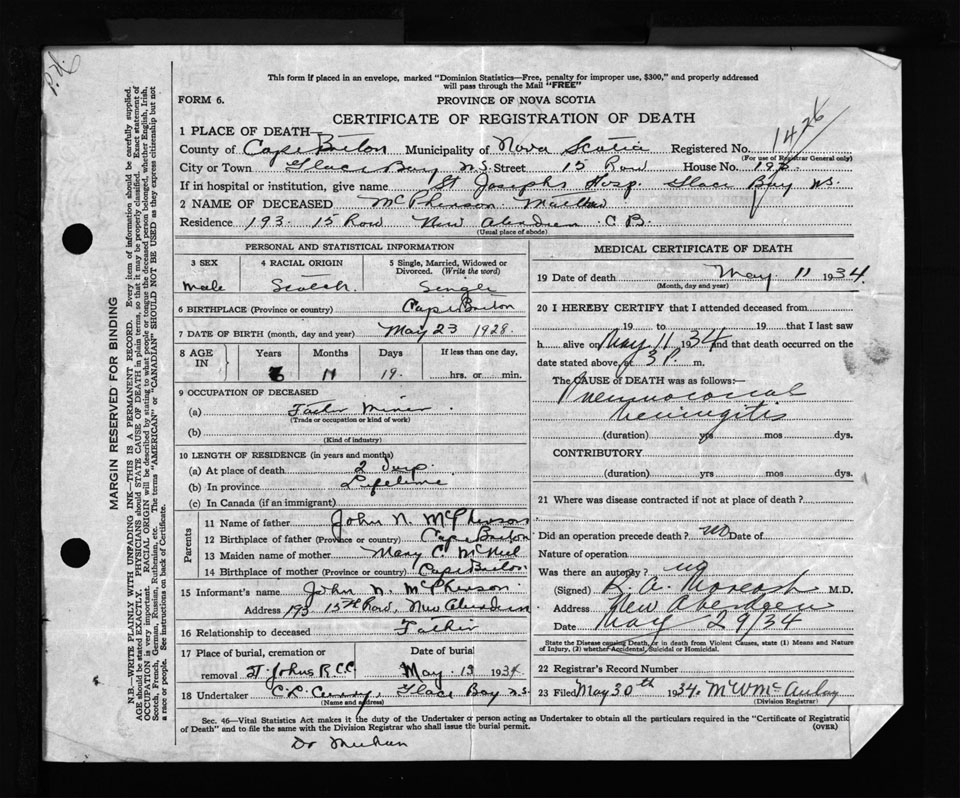 P.H.
This form if placed in an envelope, marked "Dominion Statistics—Free, penalty for improper use, $300," and properly addressed
will pass through the Mail "FREE"
FORM 6.
PROVINCE OF NOVA SCOTIA
CERTIFICATE OF REGISTRATION OF DEATH
1426
1 PLACE OF DEATH—
County of Cape Breton Municipality of Nova Scotia Registered No.
(For use of Registrar General only)
City or Town Glace Bay N.S. Street 15 Row House No. 193
If in hospital or institution, give name St Josephs Hosp. Glace Bay N.S.
2 NAME OF DECEASED McPherson
Residence 193. 15 Row New Aberdeen C B.
(Usual place of abode)
PERSONAL AND STATISTICAL INFORMATION
3 SEX 4 RACIAL ORIGIN 5 Single, Married, Widowed or
Divorced. (Write the word)
male Scotch. Single
6 BIRTHPLACE (Province or country) Cape Breton
7 DATE OF BIRTH (month, day and year) May 23 1928.
8 AGE IN Years Months Days If less than one day,
11 19. hrs. or min.
9 OCCUPATION OF DECEASED
(a) Miner
(Trade or occupation or kind of work)
(b)
(Kind of industry)
10 LENGTH OF RESIDENCE (in years and months)
(a) At place of death 2
(b) In province Lifetime
(c) In Canada (if an immigrant)
Parents
11 Name of father John N. McPherson
12 Birthplace of father (Province or country) Cape Breton
13 Maiden name of mother Mary C. McNeil
14 Birthplace of mother (Province or country) Cape Breton
15 Informant's name John N. McPherson
Address 193 15th Row, New Aberdeen
16 Relationship to deceased Father
17 Place of burial, cremation or Date of burial
removal St. Johns R.C.C. May 13 1934
18 Undertaker C.P. Curry, Glace Bay N.S.
(Name and address)
MEDICAL CERTIFICATE OF DEATH
19 Date of death May 11 1934.
(Month, day and year)
20 I HEREBY CERTIFY that I attended deceased from
19 to 19 that I last saw
h alive on May 11 1934 and that death occurred on the
date stated above, at 3 P. m.
The CAUSE OF DEATH was as follows:—
Pneumococcal
Meningitis
(duration) yrs mos dys.
CONTRIBUTORY
(duration) yrs mos dys
21 Where was disease contracted if not at place of death?
Did an operation precede death? no Date of
Nature of operation
Was there an autopsy? no
(Signed) A. M.D.
Address New Aberdeen
Date May 29/34
State the Disease causing Death, or in death from Violent Causes, state (1) Means and Nature
of Injury, (2) whether Accidental, Suicidal or Homicidal.
22 Registrar's Record Number
23 Filed May 30th 1934. McAulay
(Division Registrar)
Sec. 46—Vital Statistics Act makes it the duty of the Undertaker or person acting as Undertaker to obtain all the particulars required in the "Certificate of Registration
of Death" and to file the same with the Division Registrar who shall issue the burial permit. (OVER)
Dr Meehan
MARGIN RESERVED FOR BINDING
N.B.—WRITE PLAINLY WITH UNFADING INK—THIS IS A PERMANENT RECORD. Every item of information should be carefully supplied.
AGE should be stated EXACTLY. PHYSICIANS should STATE CAUSE OF DEATH in plain terms, so that it may be properly classified. Exact statement of
OCCUPATION is very important. RACIAL ORIGIN will be described by stating to what people or tongue the deceased person belonged, whether English, Irish,
Scotch, French, German, Russian, Ruthenian, etc. The terms "AMERICAN" or "CANADIAN" SHOULD NOT BE USED as they express citizenship but not
a race or people. See instructions on back of Certificate.